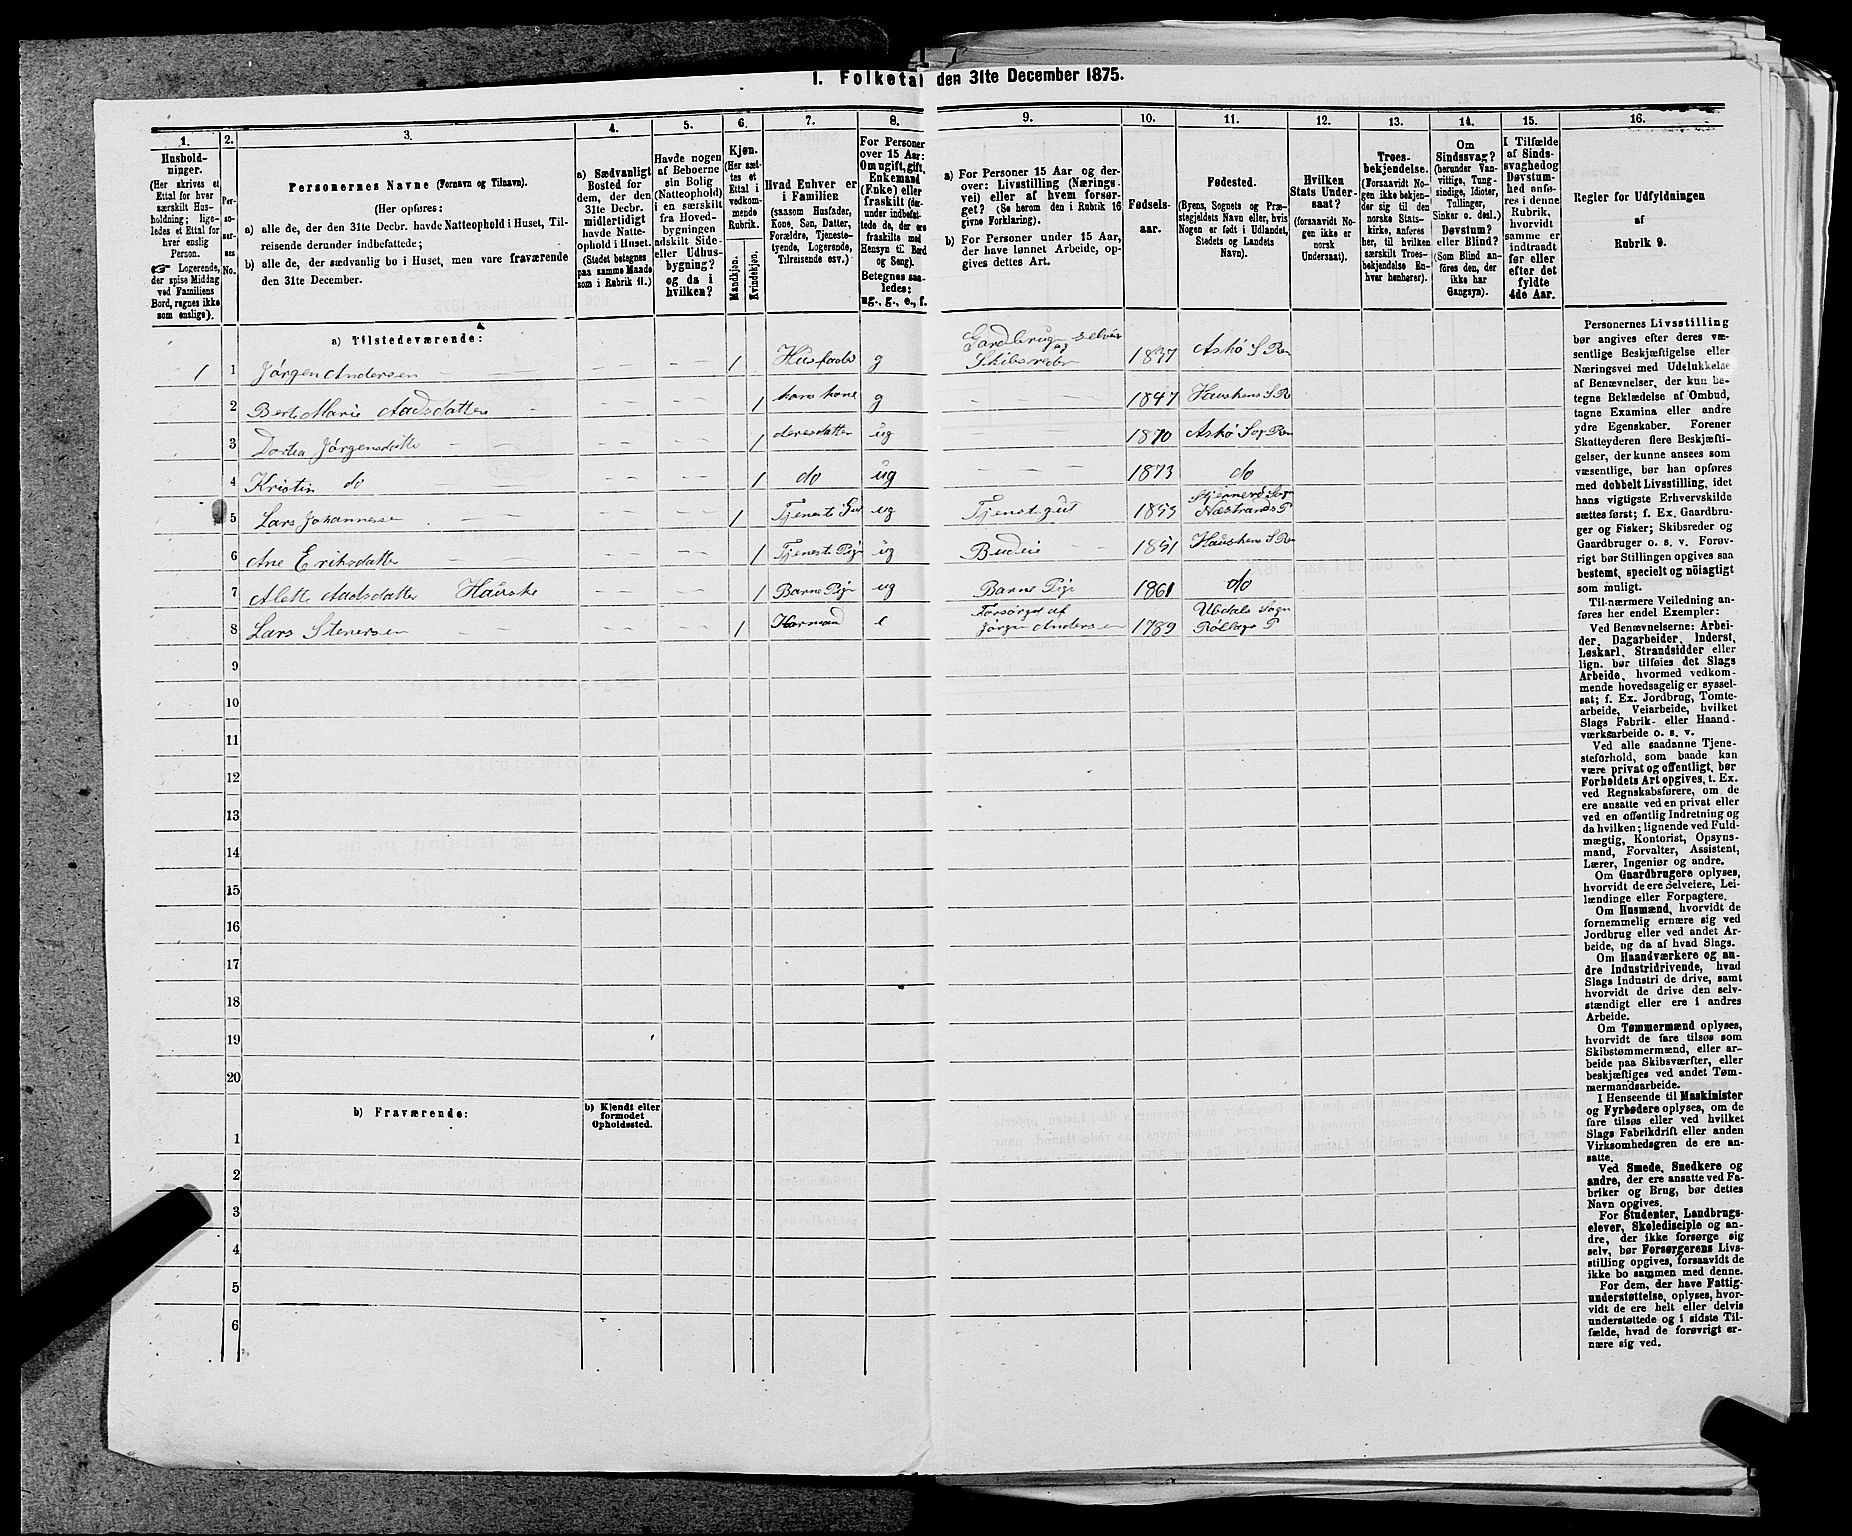 I. Folketal den 31te December 1875.
1. 2. 3. 4. 5. 6. 7. 8. 9. 10. 11. 12. 13. 14. 15. 16.
Hushold-
ninger.
(Her skrives et
Ettal for hver
særskilt Hus-
holdning; lige-
ledes et Ettal for
hver enslig
Person.
☞ Logerende,
der spise Middag
ved Familiens
Bord, regnes ikke
som enslige).
Per-
so-
ner-
nes
No.
Personernes Navne (Fornavn og Tilnavn).
(Her opføres:
a) alle de, der den 31te Decbr. havde Natteophold i Huset, Til-
reisende derunder indbefattede;
b) alle de, der sædvanlig bo i Huset, men vare fraværende
den 31te December.
a) Sædvanligt
Bosted for
dem, der den
31te Decbr.
midlertidigt
havde Natte-
ophold i Huset.
(Stedet betegnes
paa samme Maade
som i Rubrik 11.)
Havde nogen
af Beboerne
sin Bolig
(Natteophold)
i en særskilt
fra Hoved-
bygningen
adskilt Side-
eller Udhus-
bygning?
og da i
hvilken?
Kjøn.
(Her sæt-
tes et
Ettal i
vedkom-
mende
Rubrik.
Mandkjøn.
Kvindekjøn.
Hvad Enhver er
i Familien
(saasom Husfader,
Kone, Søn, Datter,
Forældre, Tjeneste-
tyende, Logerende,
Tilreisende osv.)
For Personer
over 15 Aar:
Om ugift, gift,
Enkemand
(Enke) eller
fraskilt (der-
under indbefat-
tede de, der ere
fraskilte med
Hensyn til Bord
og Seng).
Betegnes saa-
ledes:
ug., g., e., f.
a) For Personer 15 Aar og der-
over: Livsstilling (Nærings-
vei) eller af hvem forsør-
get? (Se herom den i Rubrik 16
givne Forklaring).
b) For Personer under 15 Aar,
der have lønnet Arbeide, op-
gives dettes Art.
Fødsels-
aar.
Fødested.
(Byens, Sognets og Præ-
stegjeldets Navn eller, hvis
Nogen er født i Udlandet,
Stedets og Landets
Navn).
Hvilken
Stats Under-
saat?
(forsaavidt No-
gen ikke er
norsk
Undersaat).
Troes-
bekjendelse.
(Forsaavidt No-
gen ikke bekjen-
der sig til den
norske Stats-
kirke, anføres
her, til hvilken
særskilt Troes-
bekjendelse En-
hver henhører).
Om
Sindssvag?
(herunder Van-
vittige, Tung-
sindige, Idioter,
Tullinger,
Sinker o. desl.)
Døvstum?
eller Blind?
(Som Blind an-
føres den, der
ikke har
Gangsyn).
I Tilfælde
af Sinds-
svaghed og
Døvstum-
hed anfø-
res i denne
Rubrik,
hvorvidt
samme er
indtraadt
før eller
efter det
fyldte
4de Aar.
Regler for Udfyldningen
af
Rubrik 9.
a) Tilstedeværende:
1 1 Jørgen Andersen 1 Husfader g Gardbruger selveier og Skibsreder 1837
2 Berte Marie Aadsdatter 1 hans kone g 1847
3 Dortea Jørgensdatter 1 deres datter ug 1870
4 Kristin do 1 do ug 1873 do
5 Lars Johannesen 1 Tjeneste Gut ug Tjenestgut 1853 Sogn Næstrands P
6 Ane Eriksdatter 1 Tjeneste Pige ug Budeie 1851
7 Alette Aadsdatter Hauske 1 Barne Pige ug Barne Pige 1861 do
8 Lars Stenersen 1 e Forsørges af Jørgen Andersen 1789 Sogn Rollags P
9
10
11
12
13
14
15
16
17
18
19
20
b) Fraværende:
b) Kjendt eller
formodet
Opholdssted.
1
2
3
4
5
6
Personernes Livsstilling
bør angives efter deres væ-
sentlige Beskjæftigelse eller
Næringsvei med Udelukkelse
af Benævnelser, der kun be-
tegne Beklædelse af Ombud,
tagne Examina eller andre
ydre Egenskaber. Forener
Skatteyderen flere Beskjæfti-
gelser, der kunne ansees som
væsentlige, bør han opføres
med dobbelt Livsstilling, idet
hans vigtigste Erhvervskilde
sættes først; f. Ex. Gaardbru-
ger og Fisker; Skibsreder og
Gaardbruger o. s. v. Forøv-
rigt bør Stillingen opgives saa
bestemt, specielt og nöiagtigt
som muligt.
Til nærmere Veiledning an-
føres her endel Exempler:
Ved Benævnelserne: Arbei-
der, Dagarbeider, Inderst,
Løskarl, Strandsidder eller
lign. bør tilføies det Slags
Arbeide, hvormed vedkom-
mende hovedsagelig er syssel-
sat; f. Ex. Jordbrug, Tomte-
arbeide, Veiarbeide, hvilket
Slags Fabrik- eller Haand-
værksarbeide o. s. v.
Ved alle saadanne Tjene-
steforhold, som baade kan
være privat og offentligt, bør
Forholdets Art opgives, t. Ex.
ved Regnskabsførere, om de
ere ansatte ved en privat eller
ved en offentlig Indretning og
da hvilken; lignende ved Fuld-
mægtig, Kontorist, Opsyns-
mand, Forvalter, Assistent,
Lærer, Ingeniør og andre.
Om Gaardbrugere oplyses,
hvorvidt de ere Selveiere, Lei-
lændinge eller Forpagtere.
Om Husmænd, hvorvidt de
fornemmelig ernære sig ved
Jordbrug eller ved andet Ar-
beide, og da af hvad Slags.
Om Haandværkere og an-
dre Industridrivende, hvad
Slags Industri de drive, samt
hvorvidt de drive den selv-
stændigt eller ere i andres
Arbeide.
Om Tømmermænd oplyses,
hvorvidt de fare tilsøs som
Skibstømmermænd, eller ar-
beide paa Skibsværfter, eller
beskjæftiges ved andet Tøm-
mermandsarbeide.
I Henseende til Maskinister
og Fyrbødere oplyses, om de
fare tilsøs eller ved hvilket
Slags Fabrikdrift eller anden
Virksomhedsgren de ere an-
satte.
Ved Smede, Snedkere og
andre, der ere ansatte ved Fa-
briker og Brug, bør dettes
Navn opgives.
For Studenter, Landbrugs-
elever, Skoledisciple og an-
dre, der ikke forsørge sig
selv, bør Forsørgerens Livs-
stilling opgives, forsaavidt de
ikke bo sammen med denne.
For dem, der have Fattig-
understøttelse, oplyses, hvor-
vidt de ere helt eller delvis
understøttede og i sidste Til-
fælde, hvad de forøvrigt er-
nære sig ved.